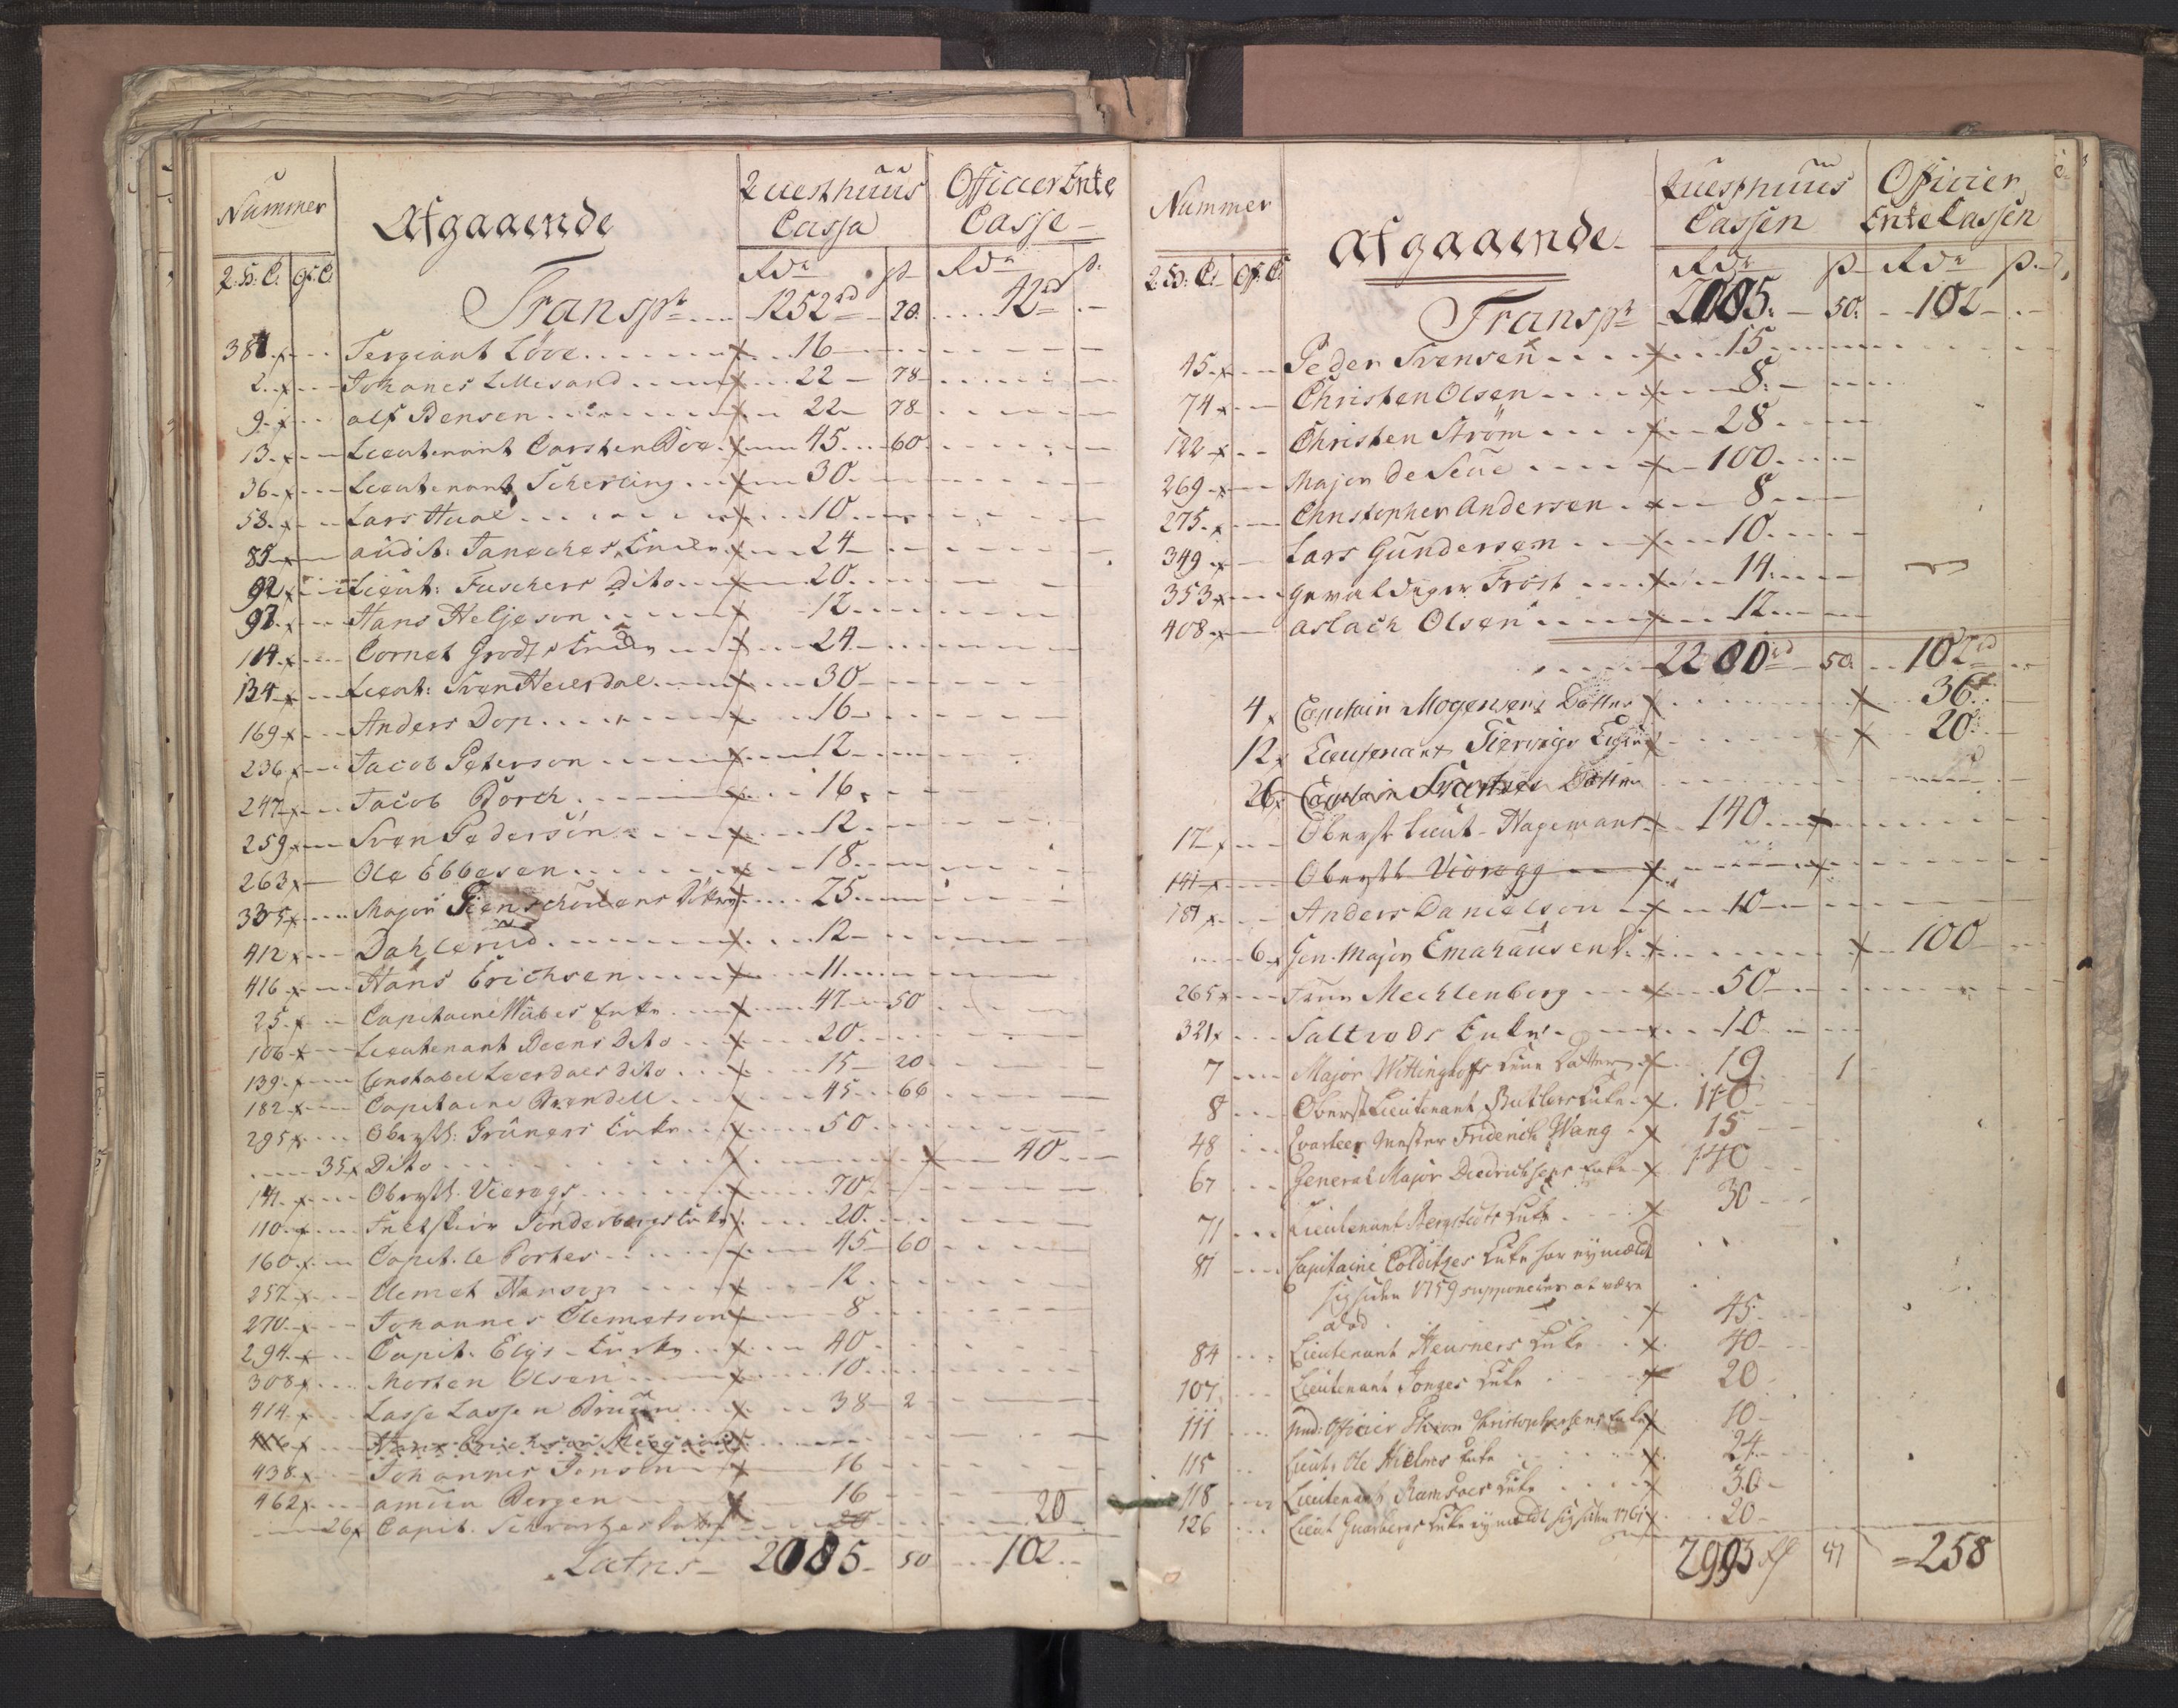 Nummer
Afgaaende
Questhuus Cassa
Officier Enke Casse
Q:H:C. Of:C.
Rdr ß Rdr ß.
Transpt 1252rd 20. 42rd
381 Sergeant Löve 16
2 Johanes Lillesand 22 78
9 alf Bensen 22 78
13 Lieutenant Carsten Boe 45 60
36 Lieutenant Scherling 30
58 Lars Hual 10
85 audit: Taneches Enke 24
92 Lieut: Fuschers Dito 20
98 Hans Heljeson 12
114 Cornet Grodts Enke 24
134 Lieut: Sven Heierdal 30
169 Anders Dop 16
236 Jacob Peterson 12
247 Jacob Borch 16
259 Sven Pedersön 12
263 Ole Ebbesen 18
335 Major Gienschöuens Döttre 25
412 Dahlerud 12
416 Hans Erichsen 11
25 Capitaine Wübes Enke 47 50
106 Lieutenant Deens Dito 20
139 Constabel Leerdals dito 15 20
182 Capitaine Brendell 45 66
295 Oberstl: Grüners Enke 50
35 Dito 40
141 Oberstl. Vieregs 70
110 Feltskier Sonderbergs Enke 20
160 Capit. le Portes 45 60
257 Clemet Hansen 12
270 Johannes Clemetson 8
294 Capit. Elys Enke 40
308 Morten Olsen 10
414 Lasse Lassen Bruun 38 2
416 Hans Erichsen
438 Johannes Jonsen 16
462 amün Bergen 16
26 Capit. Schwartzes Datter 20 20
Latus 2085 50 102
Nummer
Afgaaende
Questhuus Cassen
Officier Enke Cassen
Q:H:C. Off:C.
Rdr ß Rdr ß.
Transpt 2005. 50. 102
45 Peder Svensen 15
74 Christen Olsen 8
122 Christen Ström 28
269 Major de Seue 100
275 Christopher Andersen 8
349 Lars Gundersen 10
353 Gevaldiger Frost 14
408 aslach Olsen 12
2200rd 50. 102rd
4 Capitain Mogensens Datter 36
12 Lieutenant Enke 20
26 Capitain Svartzes Datter
17 Oberst Lieut. Hagemans 140
141 Oberstl Vieregg
181 Anders Danielson 10
6 Gen. Major Emahausen 100
265 Frue Mechlenberg 50
321 Saltrods Enke 10
7 Major Wittinghoffs Datter 19 1
8 Oberst Lieutenant Butlers Enke 140
48 Qvarteer Mester Friderich Wang 15
67 General Major Diedrichsens Enke 140
71 Lieutenant Bergstedts Enke 30
81 Capitaine Colditzes Enke har ey meldt
sig siden 1759 supponeres at være
död 45
84 Lieutenant Heusners Enke 40
107 Lieutenant Jonges Enke 20
111 Und: Officier Christophersens Enke 10
115 Lieut: Ole Hielmes Enke 24
118 Lieutenant Ramsoes Enke 30
126 Lieut Guarbergs Enke ey meldt sig siden 1761 20
2993 47 258